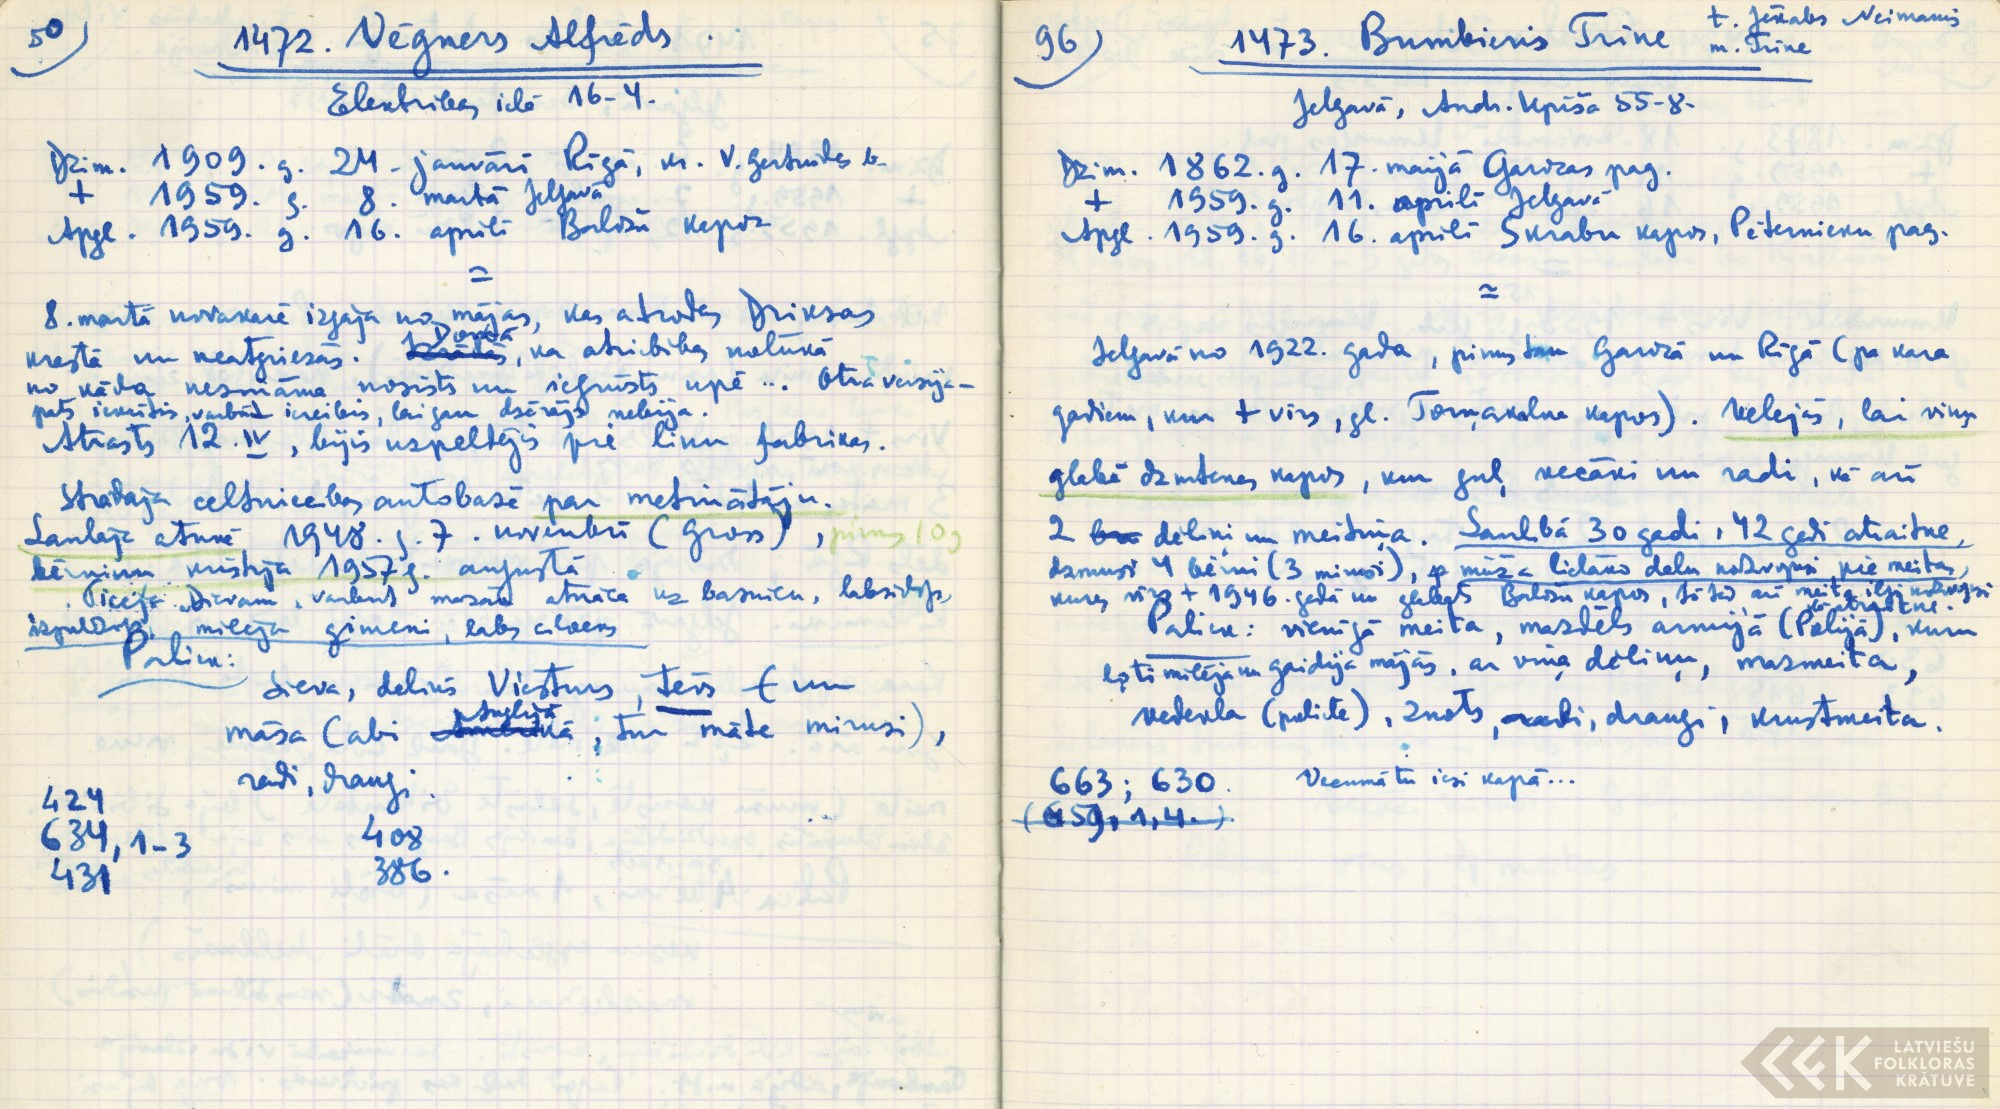 50)
1472. Vēgners Alfrēds.
Elektrības ielā 16-4.
Dzim. 1909. g. 24. janvārī Rīgā, kr. V. Gertrudes b.
+ 1959. g. 8. martā Jelgavā
Apgl. 1959. g. 16. aprīlī Baložu kapos
=
8. martā novakarē izgāja no mājas, kas atrodas Driksas
krastā un neatgriezās. Domā, ka atriebības nolūkā
no kāda nezināma nosists un iegrūsts upē... Otra versija-
pats iekritis, varbūt iereibis, lai gan dzērājs nebija.
Atrasts 12. IV, bijis uzpeldējis pie linu fabrikas.
Strādāja celtniecības autobazē par metinātāju.
Laulājā atunē 1948. g. 7. novembrī (Gross), pirms 10g
bērniņu kristīja 1957g. augustā
Ticēja Dievam, varbūt mazāk atnāca uz baznīcu, labsirdīgs,
izpalīdzīgs, mīlēja ģimeni, labs cilvēks
Paliek:
sieva, dēliņš Viesturs, tēvs (un
māsa (abi Anglijā, tur māte mirusi),
radi, draugi.
424
634, 1-3 408
431 386.
96)
1473. Bumbieris Trīne t. Jēkabs Neimanis
m. Trīne
Jelgavā, Andr. Upīša 55-8.
Dzim. 1862. g. 17. maijā Garozas pag.
+ 1959. g. 11. aprīlī Jelgavā
Apgl. 1959. g. 16. aprīlī Skrabu kapos, Pēternieku pag.
=
Jelgavā no 1922. gada, pirms tam Garozā un Rīgā (pa kara
gadiem, kur + vīrs, gl. Torņakalna kapos). Vēlējās, lai viņu
glabā dzimtenes kapos, kur guļ vecāki un radi, kā arī
2 dēliņi un meitiņa. Laulībā 30 gadi, 42 gadi atraitne,
dzimuši 4 bērni (3 miruši), mūža lielāko daļu nodzīvojusi pie meitas,
kuras vīrs + 1946. gadā un glabāts Baložu kapos, tā tad arī meita ilgi nodzīvojusi
kā atraitne.
Paliek: vienīgā meita, mazdēls armijā (Polijā), kuru
ļoti mīlēja un gaidīja mājās, ar viņa dēliņu, mazmeita,
vedekla (palikte), znots, radi, draugi, krustmeita.
663; 630. Vecumā tu iesi kapā...
(659, 1, 4.)
LATVIEŠU
FOLKLORAS
KRĀTUVE